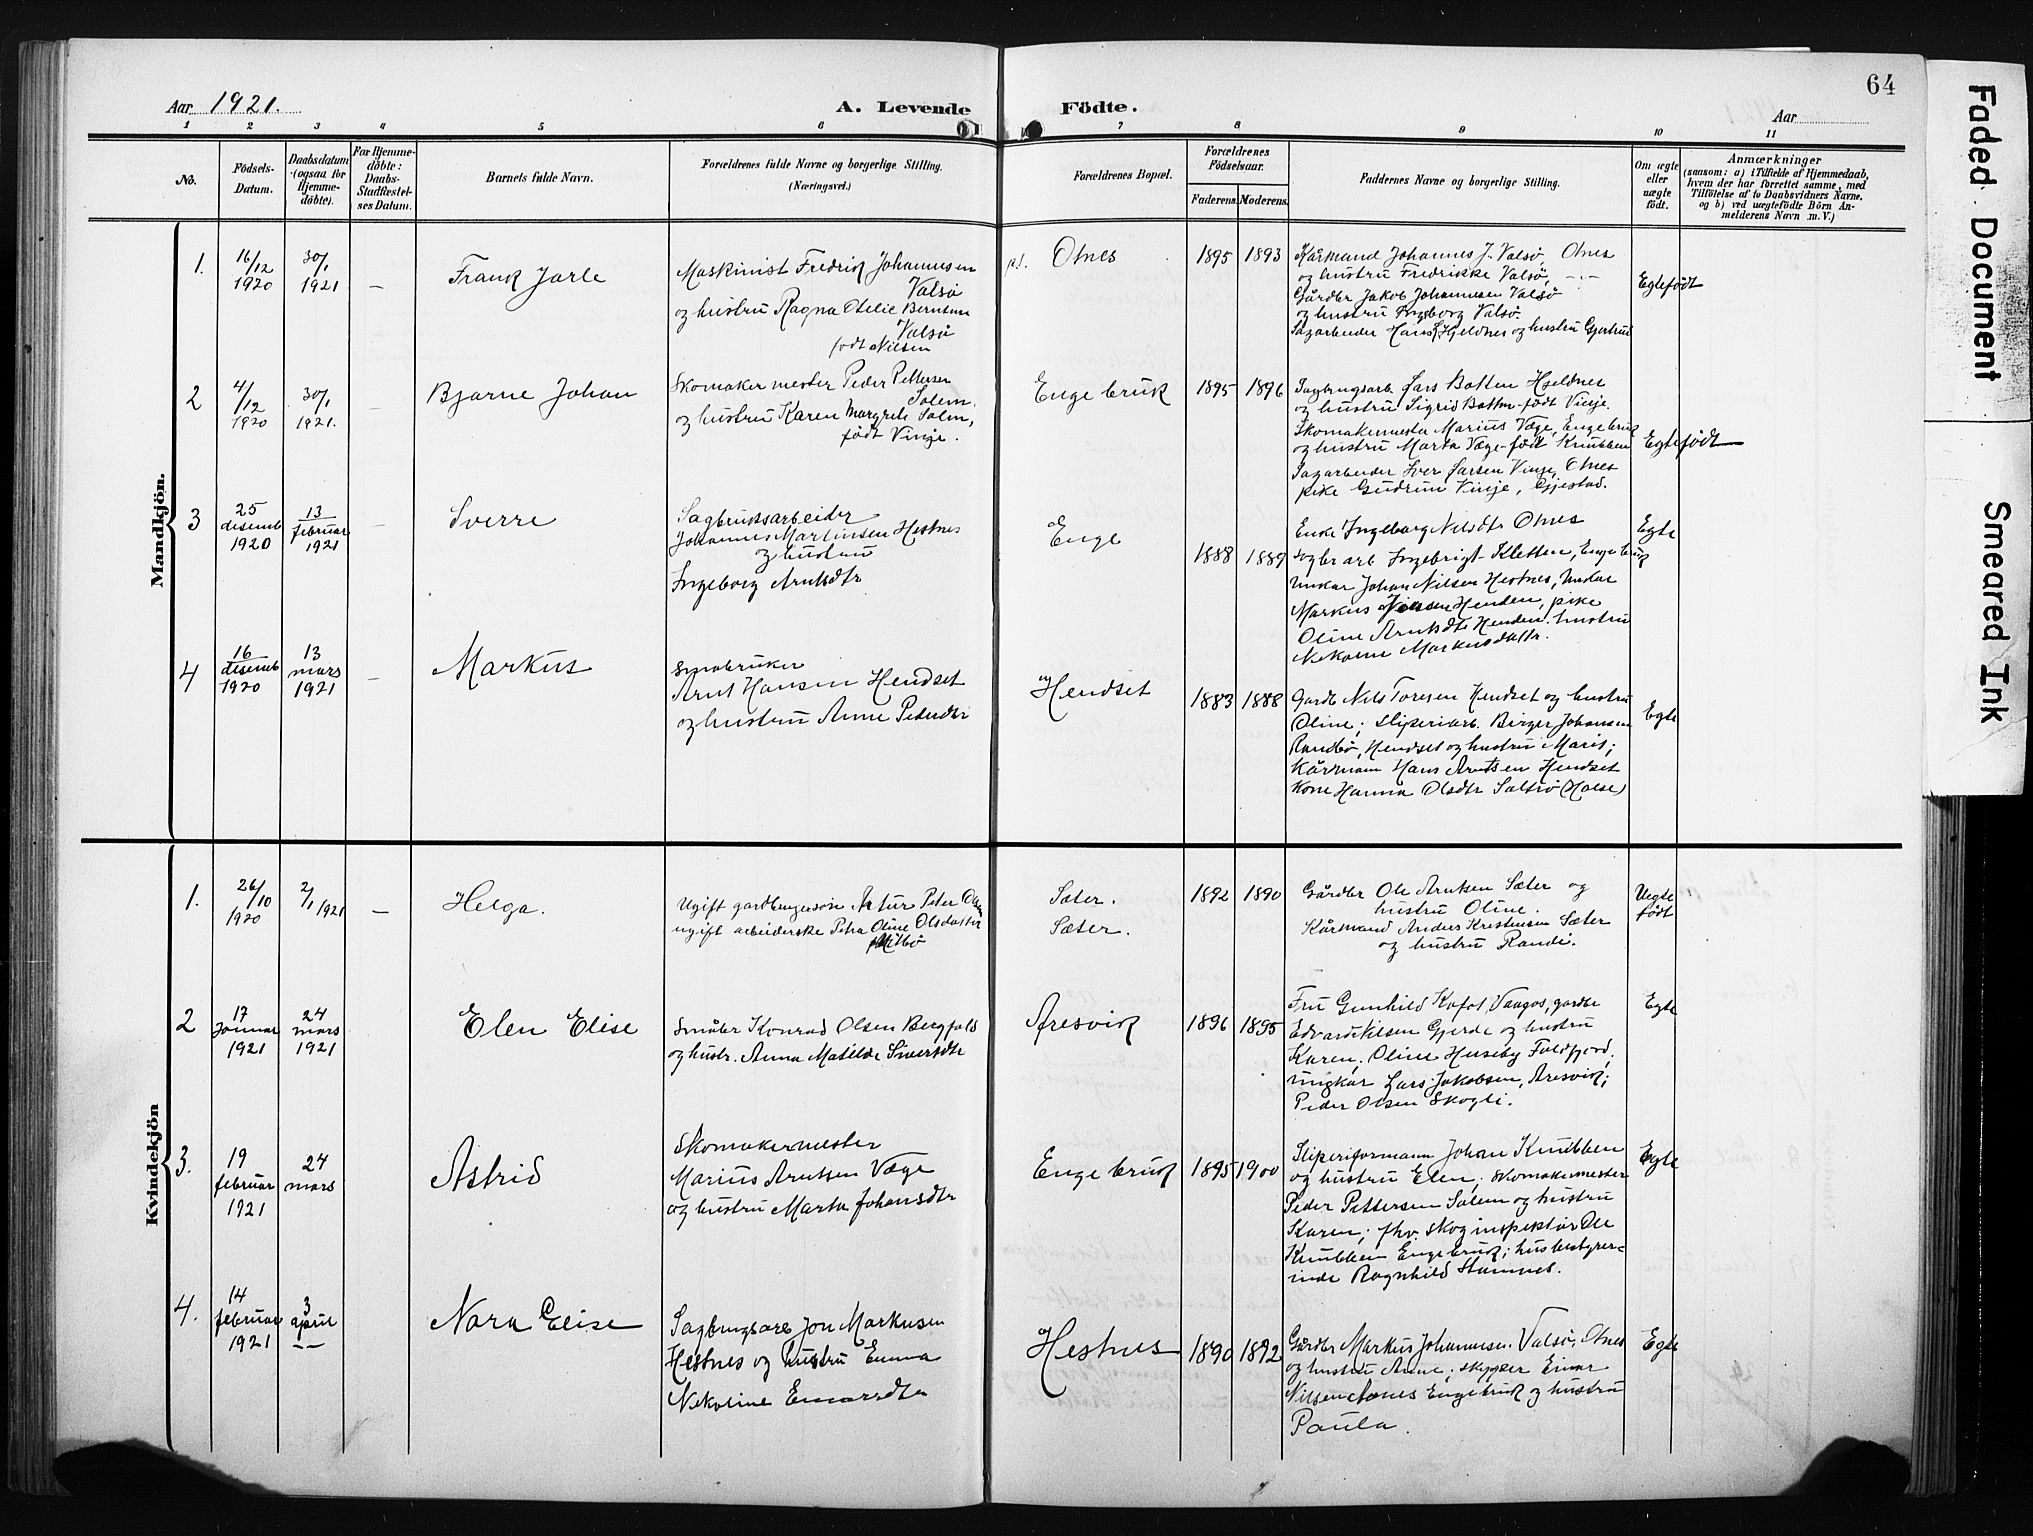 64
Aar 1921.
A. Levende Födte.
Aar
1 2 3 4 5 6 7 8 9 10 11
No.
Födsels-
Datum.
Daabsdatum
(ogsaa for
Hjemme-
döbte).
For Hjemme-
döbte:
Daabs-
Stadfæstel-
ses Datum.
Barnets fulde Navn.
Forældrenes fulde Navne og borgerlige Stilling.
(Næringsvei.)
Forældrenes Bopæl.
Forældrenes
Födselsaar.
Faderens. Moderens.
Faddernes Navne og borgerlige Stilling.
Om ægte
eller
uægte
födt.
Anmærkninger
(saasom: a) i Tilfælde af Hjemmedaab,
hvem der har forrettet samme, med
Tilföielse af to Daabsvidners Navne,
og b) ved uægtefödte Börn An-
melderens Navn m. V.)
Mandkjön.
1.
16/12
1920
30/1
1921
—
Frank Jarle
Maskinist Fredrik Johannesen
Valsö
og hustru Ragna Otelie Berntsen
Valsö
født Nilsen
Otnes
1895 1893
Kårmand Johannes J. Valsö, Otnes
og hustru Fredrikke Valsö,
Gårdbr Jakob Johannesen Valsö
og hustru Ingeborg Valsö.
Sagarbeider Hans Hjeldnes og hustru Gjertrud
Egtefødt
2
4/12
1920
30/1
1921.
—
Bjarne Johan
Skomaker mester Peder Pettersen
Solem.
og hustru Karen Margrete Solem,
født Vinje.
Enge bruk
1895 1896
Sagbrugsarb. Lars Botten Hjeldnes
og hustru Sigrid Botten født Vinje.
Skomakermester Marius Væge, Engebruk
og hustru Marta Væge født Knubben
Sagarbeider Iver Larsen Vinje, Otnes
pike Gudrun Vinje, Gjestad.
Egtefødt
3
25
desemb
1920
13
februar
1921
—
Sverre
Sagbruksarbeider
Johannes Martinsen Hestnes
og hustru
Ingeborg Arntsdtr
Enge
1888 1889
Enke Ingeborg Nilsdtr Otnes
sagbr arb Ingebrigt Kletten, Enge bruk
unkar Johan Nilsen Hestnes, unkar
Markus Henden, pike
Oline Arntsdtr Henden. hustru
Markusdattr.
Egte
4
16
desemb
1920
13
mars
1921
—
Markus
Småbruker
Arnt Hansen Hendset
og hustru Anne Pedersdtr
Hendset
1883 1888
Gardb Nils Toresen Hendset og hustru
Oline; sliperiarb. Birger Johansen
Randbö, Hendset og hustru Marit;
Kårmann Hans Arntsen Hendset
Kone Hanna Olsdtr Saltrö (Halse)
Egte
Kvindekjön
1.
26/10
1920
2/1 1921
—
Helga.
Ugift gardbrugersøn Artur Peter
ugift arbeiderske Petra Oline Olsdatter
Sæter.
Sæter.
1892 1890
Gårdbr Ole Arntsen Sæter og
hustru Oline.
Kårmand Anders Kristensen Sæter
og hustru Randi.
Uegte
født
2
17
januar
1921
24
mars
1921
Elen Elise
Småbr Konrad Olsen Bergfald
og hustr. Anna Matilde Sivertsdtr
Aresvik
1896 1895
Fru Gunhild Kofot, Vaagos, gardbr
Edvard Nilsen Gjerde og hustru
Karen. Oline Huseby Foldfjord,
ungkar Lars Jakobsen, Aresvik;
Peder Olsen Skogli.
Egte
3.
19
februar
1921
24
mars
Astrid
Skomakermester
Marius Arntsen Væge
og hustru Marta Johansdtr
Enge bruk
1895 1900
Sliperiformann Johan Knubben
og hustru Elen; skomakermester
Peder Pettersen Solem og hustru
Karen; fhv. skoginspektør Ole
Knubben Engebruk; husbestyrer-
inde Ragnhild Stamnes.
Egte
4.
14
februar
1921
3
april
— —
Nora Elise
Sagbrugsarb Jon Markusen
Hestnes og hustru Emma
Nekoline Einarsdtr
Hestnes
1890 1892
Gardbr Markus Johannesen Valsö, Otnes
og hustru Anne; skypper Einar
Nilsen Engebruk og hustru
Paula.
Egte
Faded Document
Smeared Ink